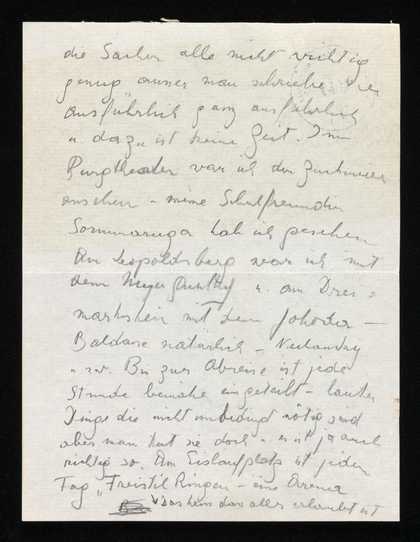 die Sachen alle nicht richtig
genug ausser man schriebe
ausführlich ganz ausführlich
u. dazu ist keine Zeit. Im
Burgtheater war ich den Zuckmeier
anschen - meine Schulfreundin
Sommaruga hab ich gesehen
Am Leopoldsberg war ich mit
dem u. am Drei =
markstein mit dem
natürlich -
u.s.w. Bis zur Abreise ist jede
Stunde beinahe eingeteilt - lauter
Dinge die nicht unbedingt nötig sind
aber man tut sie doch - es ist ja auch
richtig so. Am Eislaufplatz ist jeden
Tag „Freistil Ringen - eine Arena
dass das alles erlaubt ist